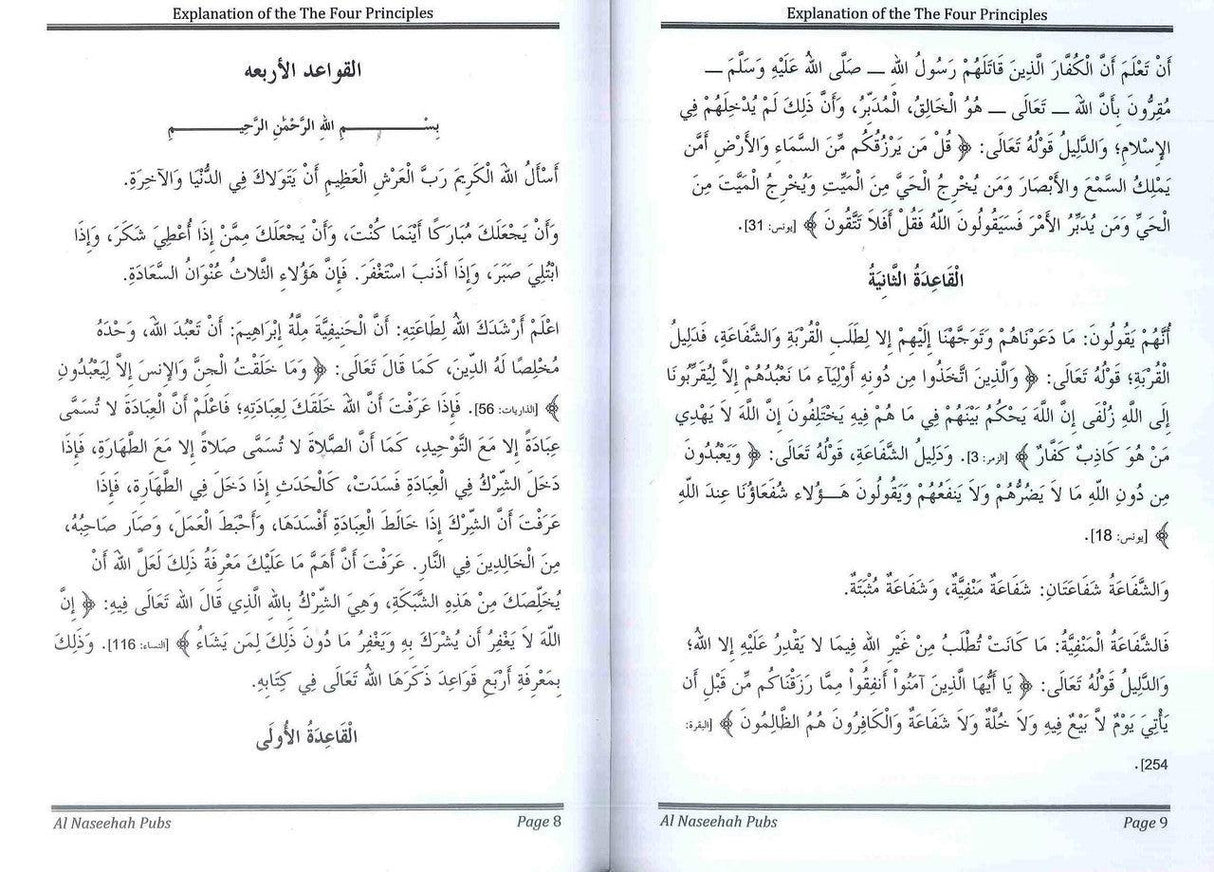 Explanation of the The Four Principles
القواعد الأربعه
بِسْـــــــــمِ اللهِ الرَّحْمٰنِ الرَّحِيـــــــــمِ
أَسْأَلُ اللهَ الْكَرِيمَ رَبَّ الْعَرْشِ الْعَظِيمِ أَنْ يَتَوَلاكَ فِي الدُّنْيَا وَالآخِرَةِ.
وَأَنْ يَجْعَلَكَ مُبَارَكًا أَيْنَمَا كُنْتَ، وَأَنْ يَجْعَلَكَ مِمَّنْ إِذَا أُعْطِيَ شَكَرَ، وَإِذَا
ابْتُلِيَ صَبَرَ، وَإِذَا أذنبَ اسْتَغْفَرَ. فَإِنَّ هَؤُلاءِ الثَّلاثُ عُنْوَانُ السَّعَادَةِ.
اعْلَمْ أَرْشَدَكَ اللهُ لِطَاعَتِهِ: أَنَّ الْحَنِيفِيَّةَ مِلَّةُ إِبْرَاهِيمَ: أَنْ تَعْبُدَ اللهَ، وَحْدَهُ
مُخْلِصًا لَهُ الدِّينَ، كَمَا قَالَ تَعَالَى: ﴿ وَمَا خَلَقْتُ الْجِنَّ وَالإِنسَ إِلاَّ لِيَعْبُدُونِ
﴾ [الذاريات: 56]. فَإِذَا عَرَفْتَ أَنَّ اللهَ خَلَقَكَ لِعِبَادَتِهِ؛ فَاعْلَمْ أَنَّ الْعِبَادَةَ لا تُسَمَّى
عِبَادَةً إِلا مَعَ التَّوْحِيدِ، كَمَا أَنَّ الصَّلاةَ لا تُسَمَّى صَلاةً إِلا مَعَ الطَّهَارَةِ، فَإِذَا
دَخَلَ الشِّرْكُ فِي الْعِبَادَةِ فَسَدَتْ، كَالْحَدَثِ إِذَا دَخَلَ فِي الطَّهَارَةِ، فَإِذَا
عَرَفْتَ أَنَّ الشِّرْكَ إِذَا خَالَطَ الْعِبَادَةَ أَفْسَدَهَا، وَأَحْبَطَ الْعَمَلَ، وَصَارَ صَاحِبُهُ،
مِنَ الْخَالِدِينَ فِي النَّارِ. عَرَفْتَ أَنَّ أَهَمَّ مَا عَلَيْكَ مَعْرِفَةُ ذَلِكَ لَعَلَّ اللهَ أَنْ
يُخَلِّصَكَ مِنْ هَذِهِ الشَّبَكَةِ، وَهِيَ الشِّرْكُ بِاللهِ الَّذِي قَالَ الله تَعَالَى فِيهِ: ﴿ إِنَّ
اللّهَ لاَ يَغْفِرُ أَن يُشْرَكَ بِهِ وَيَغْفِرُ مَا دُونَ ذَلِكَ لِمَن يَشَاءُ ﴾ [النساء: 116]. وَذَلِكَ
بِمَعْرِفَةِ أَرْبَعِ قَوَاعِدَ ذَكَرَهَا اللهُ تَعَالَى فِي كِتَابِهِ.
الْقَاعِدَةُ الأُولَى
Al Naseehah Pubs Page 8
Explanation of the The Four Principles
أَنْ تَعْلَمَ أَنَّ الْكُفَّارَ الَّذِينَ قَاتَلَهُمْ رَسُولُ اللهِ ـــ صَلَّى اللهُ عَلَيْهِ وَسَلَّمَ ـــ
مُقِرُّونَ بِأَنَّ اللهَ ـــ تَعَالَى ـــ هُوُ الْخَالِقُ، الْمُدَبِّرُ، وَأَنَّ ذَلِكَ لَمْ يُدْخِلْهُمْ فِي
الإِسْلامِ؛ وَالدَّلِيلُ قَوْلُهُ تَعَالَى: ﴿ قُلْ مَن يَرْزُقُكُم مِّنَ السَّمَاءِ وَالأَرْضِ أَمَّن
يَمْلِكُ السَّمْعَ والأَبْصَارَ وَمَن يُخْرِجُ الْحَيَّ مِنَ الْمَيِّتِ وَيُخْرِجُ الْمَيَّتَ مِنَ
الْحَيِّ وَمَن يُدَبِّرُ الأَمْرَ فَسَيَقُولُونَ اللّهُ فَقُلْ أَفَلاَ تَتَّقُونَ ﴾ [يونس: 31].
الْقَاعِدَةُ الثَّانِيَةُ
أُنَّهُمْ يَقُولُونَ: مَا دَعَوْنَاهُمْ وَتَوَجَّهْنَا إِلَيْهِمْ إِلا لِطَلَبِ الْقُرْبَةِ وَالشَّفَاعَةِ، فَدَلِيلُ
الْقُرْبَةِ؛ قَوْلُهُ تَعَالَى: ﴿ وَالَّذِينَ اتَّخَذُوا مِن دُونِهِ أَوْلِيَاء مَا نَعْبُدُهُمْ إِلاَّ لِيُقَرِّبُونَا
إِلَى اللَّهِ زُلْفَى إِنَّ اللَّهَ يَحْكُمُ بَيْنَهُمْ فِي مَا هُمْ فِيهِ يَخْتَلِفُونَ إِنَّ اللَّهَ لاَ يَهْدِي
مَنْ هُوَ كَاذِبٌ كَفَّارٌ ﴾ [الزمر: 3]. وَدَلِيلُ الشَّفَاعَةِ، قَوْلُهُ تَعَالَى: ﴿ وَيَعْبُدُونَ
مِن دُونِ اللّهِ مَا لاَ يَضُرُّهُمْ وَلاَ يَنفَعُهُمْ وَيَقُولُونَ هَـــؤُلاء شُفَعَاؤُنَا عِندَ اللّهِ
﴾ [يونس: 18].
وَالشَّفَاعَةُ شَفَاعَتَانِ: شَفَاعَةٌ مَنْفِيَّةٌ، وَشَفَاعَةٌ مُثْبَتَةٌ.
فَالشَّفَاعَةُ الْمَنْفِيَّةُ: مَا كَانَتْ تُطْلَبُ مِنْ غَيْرِ اللهِ فِيمَا لا يَقْدِرُ عَلَيْهِ إِلا اللهُ؛
وَالدَّلِيلُ قَوْلُهُ تَعَالَى: ﴿ يَا أَيُّهَا الَّذِينَ آمَنُواْ أَنفِقُواْ مِمَّا رَزَقْنَاكُم مِّن قَبْلِ أَن
يَأْتِيَ يَوْمٌ لاَّ بَيْعٌ فِيهِ وَلاَ خُلَّةٌ وَلاَ شَفَاعَةٌ وَالْكَافِرُونَ هُمُ الظَّالِمُونَ ﴾ [البقرة:
254].
Al Naseehah Pubs Page 9